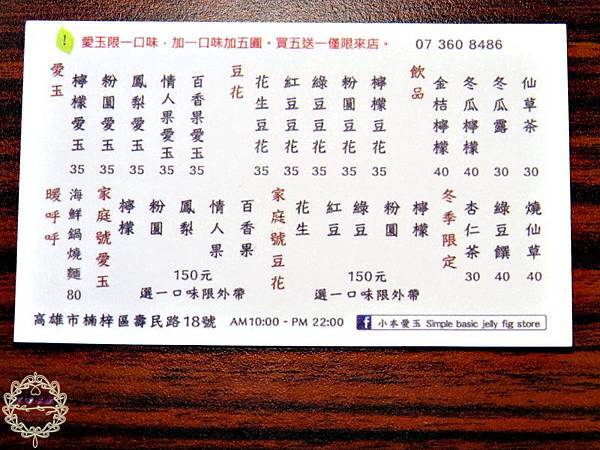 ! 愛玉限一口味,加一口味加五圓。買五送一僅限來店。 07 360 8486
愛玉
檸檬愛玉 35
粉圓愛玉 35
鳳梨愛玉 35
情人果愛玉 35
百香果愛玉 35
豆花
花生豆花 35
紅豆豆花 35
綠豆豆花 35
粉圓豆花 35
檸檬豆花 35
飲品
金桔檸檬 40
冬瓜檸檬 40
冬瓜露 30
仙草茶 30
暖呼呼
海鮮鍋燒麵 80
家庭號愛玉
檸檬
粉圓
鳳梨
情人果
百香果
150元
選一口味限外帶
家庭號豆花
花生
紅豆
綠豆
粉圓
檸檬
150元
選一口味限外帶
冬季限定
杏仁茶 30
綠豆饌 40
燒仙草 40
高雄市楠梓區壽民路18號 AM10:00 - PM 22:00 f 小本愛玉 Simple basic jelly fig store